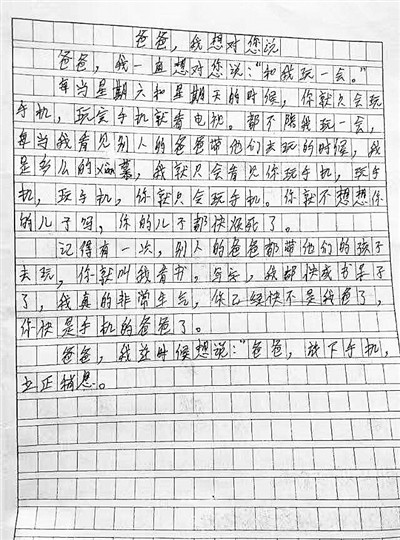 爸爸，我想对您说
爸爸，我一直想对您说：“和我玩一会。”
每当星期六和星期天的时候，你就只会玩
手机，玩完手机就看电视。都不陪我玩一会，
每当我看见别人的爸爸带他们去玩的时候，我
是多么的xiàn慕，我就只会看见你玩手机，玩手
机，玩手机，你就只会玩手机。你就不想想你
的儿子吗，你的儿子都快没死了。
记得有一次，别人的爸爸都带他们的孩子
去玩，你就叫我看书，写字，我都快成书呆子
了，我真的非常生气，你已经快不是我爸了，
你快是手机的爸爸了。
爸爸，我这时候想说：“爸爸，放下手机，